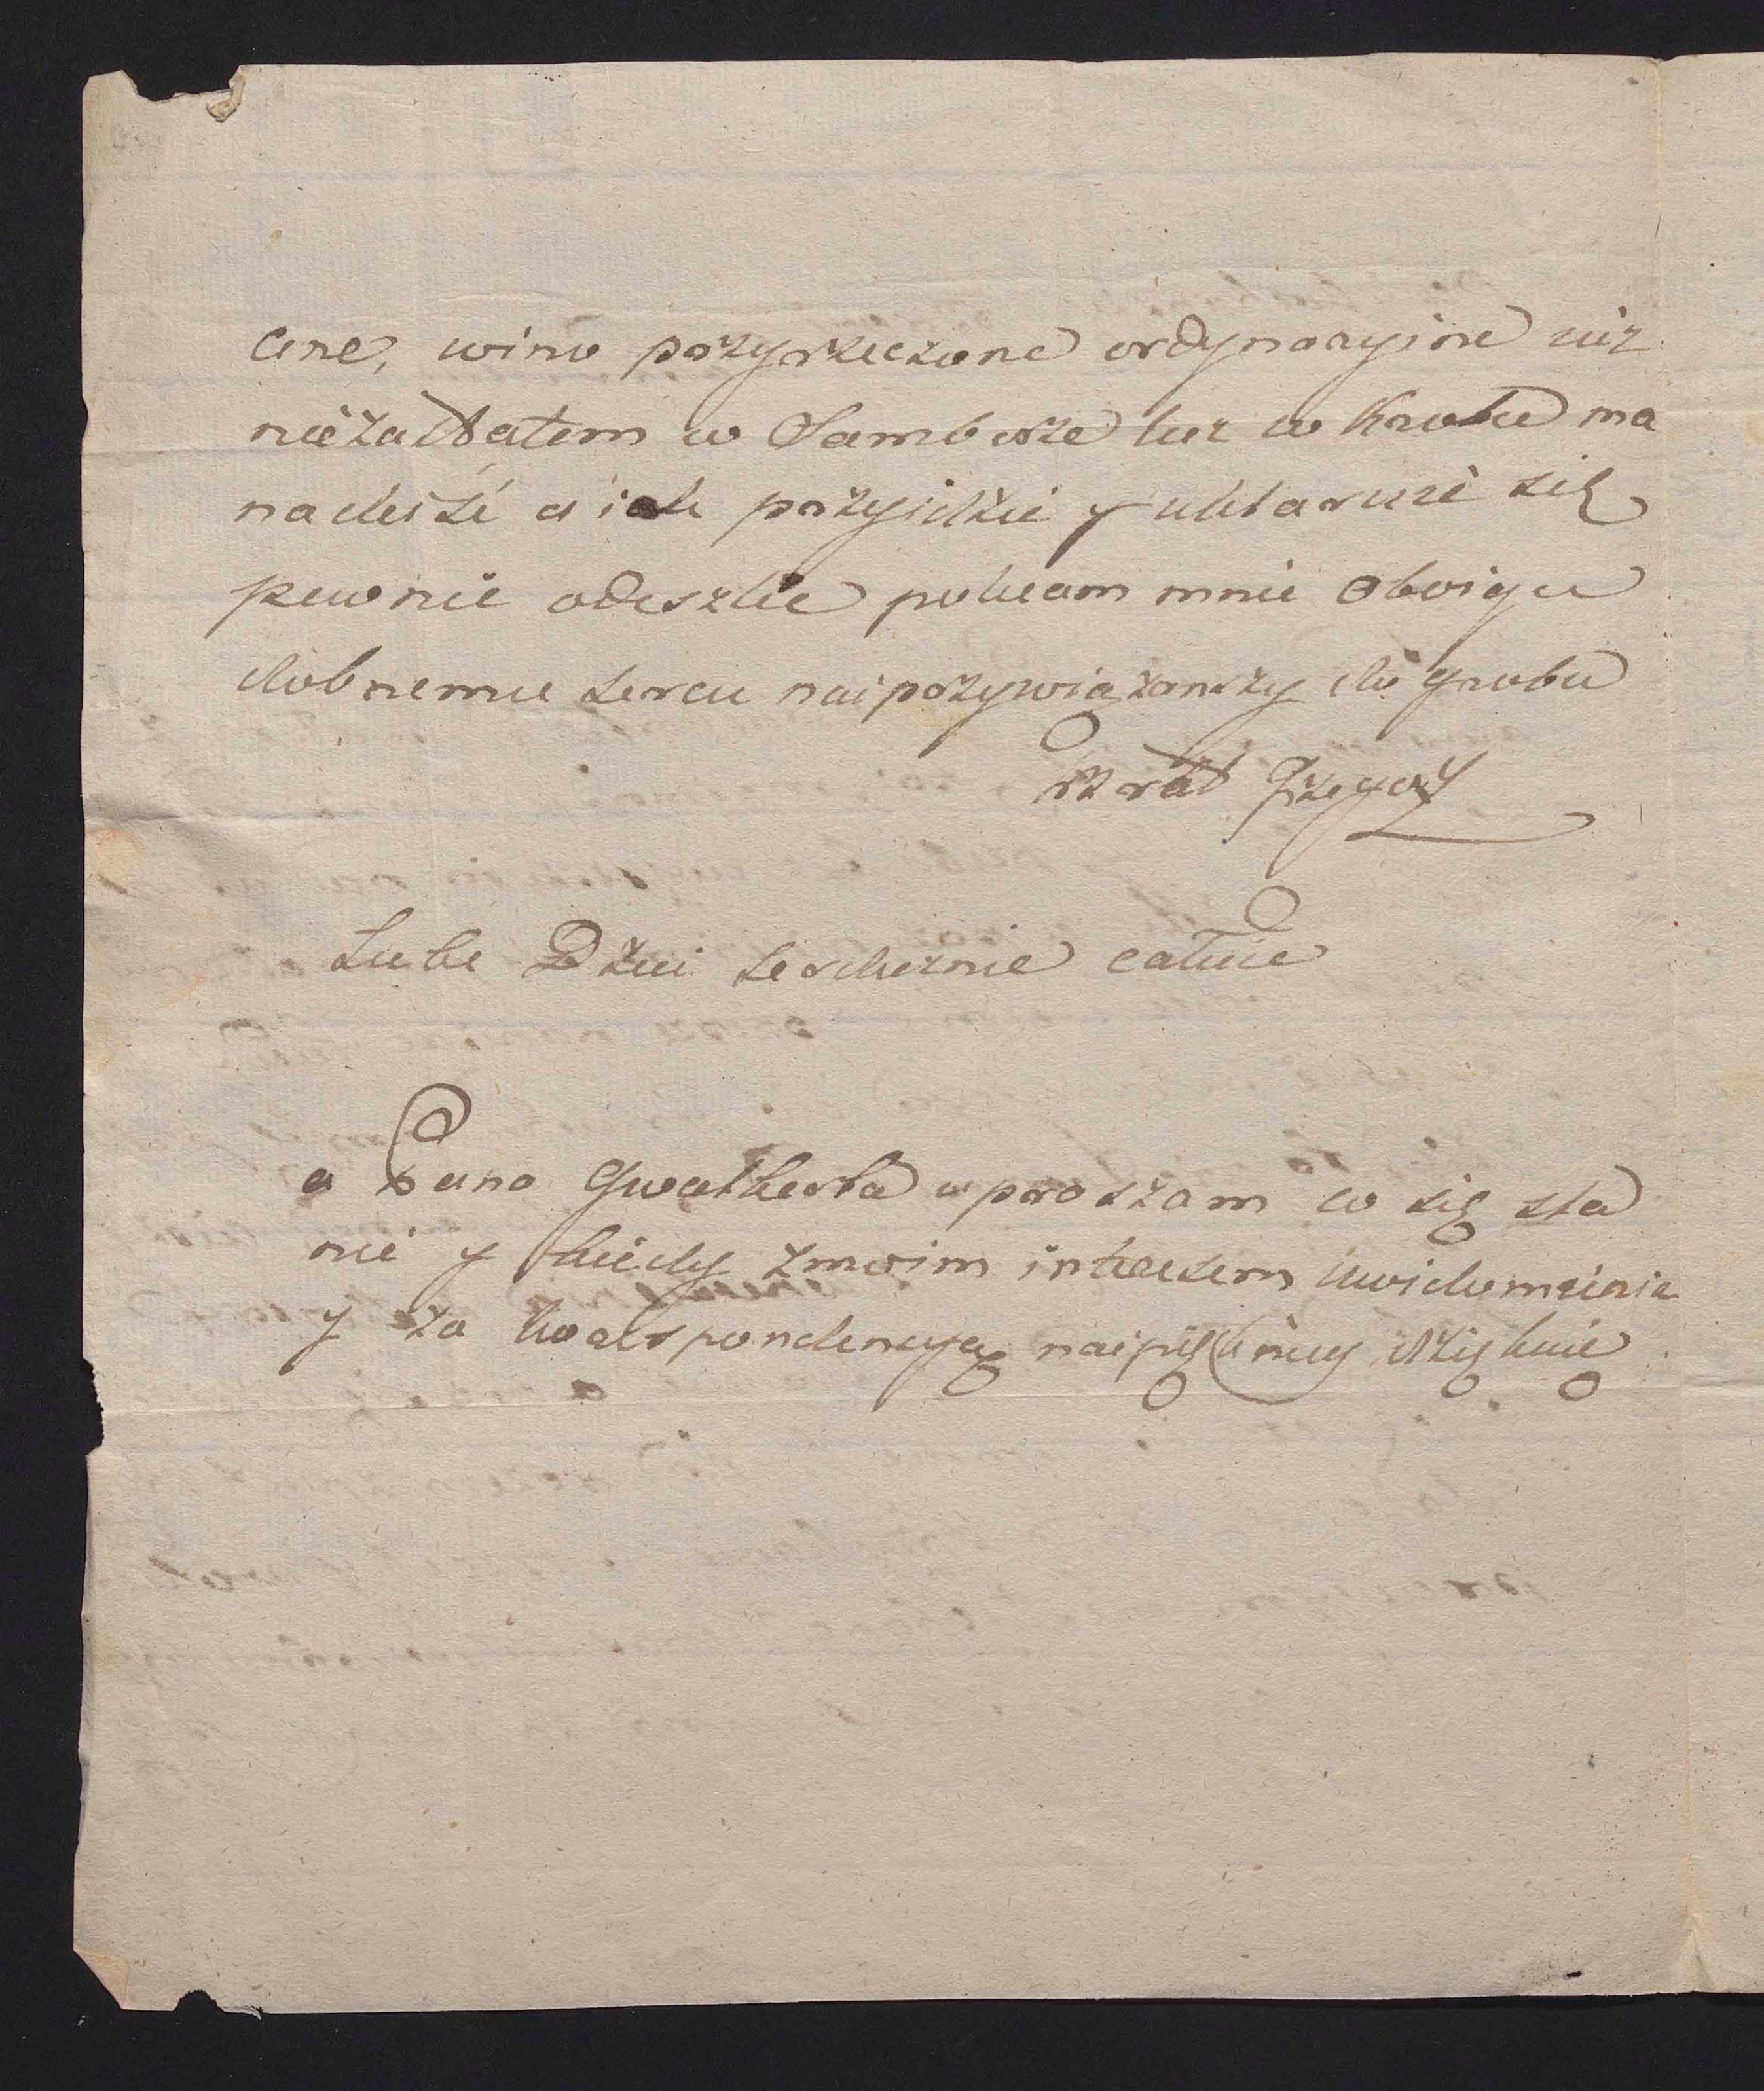 cine, wino przyrzeczone ordynaryine iuz
niezastałem w Samborze lecz w krotce ma
nadeisć a iak przyidzie y uklaruie się
pewnie odeszlie polecam mnie Oboigu
dobnemu sercu naiprzywiązanszy do grobu
Brat Grzegorz
Lube Dzieci serdecznie całuie
a Pana Gwalberta upraszam co się sta
nie y kiedy zmoim interesem uwidomienia
y za korespondencyą naipięknięy dzięknie